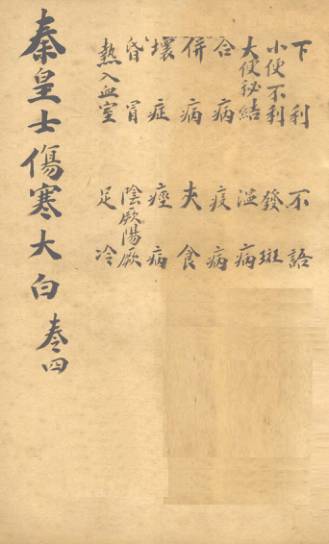 下利　不語
小便不利　發斑
大便秘結　溫病
合病　疫病
併病　夾食
壞症　痙病
昏冒　陰厥陽厥
熱入血室　足冷
秦皇士傷寒大白　卷四